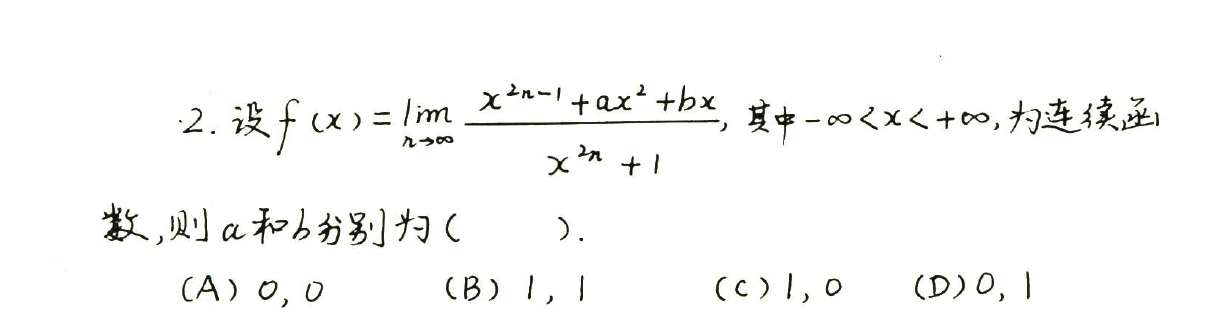 2. 设 f(x) = lim_{n→∞} \frac{x^{2n-1}+ax^2+bx}{x^{2n}+1}, 其中 -∞<x<+∞, 为连续函
数, 则 a 和 b 分别为 ( ).
(A) 0, 0 (B) 1, 1 (C) 1, 0 (D) 0, 1